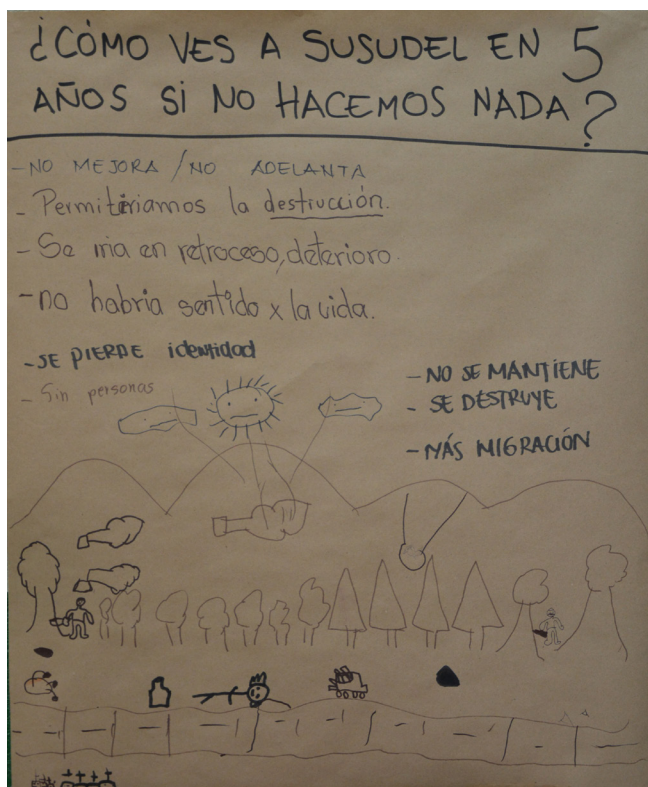 ¿CÓMO VES A SUSUDEL EN 5
AÑOS SI NO HACEMOS NADA?
-NO MEJORA /NO ADELANTA
- Permitiriamos la destrucción.
- Se iria en retroceso, deterioro.
-no habria sentido x la vida.
-SE PIERDE identidad
- Sin personas
- NO SE MANTIENE
- SE DESTRUYE
- MÁS MIGRACIÓN